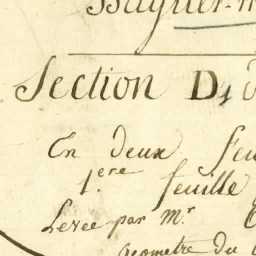 Section D,
En deux
1.ere feuille
Levée par Mr
Geometre du